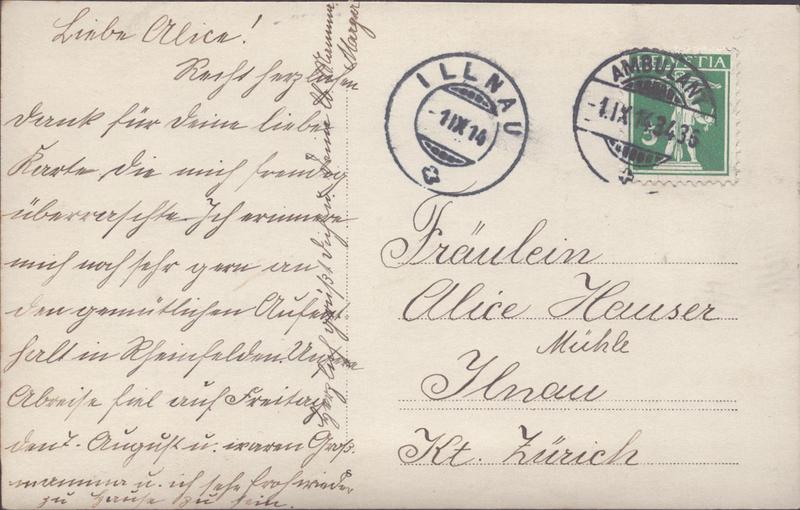 Liebe Alice!
Recht herzlichen
Dank für Deine liebe
Karte die mich freudig
überraschte. Ich erinnere
mich noch sehr gern an
den gemütlichen Aufent-
halt in Rheinfelden. Unsere
Abreise fiel auf Freitag
den 7. August u. waren Groß-
mamma u. ich sehr froh wieder
zu Hause zu sein.
Herzlich grüßt Dich u. Deine lb. Mamma
Margrit
ILLNAU
-1.IX.14
AMBULANT
-1.IX.14.34.36
HELVETIA
5
Fräulein
Alice Hauser
Mühle
Ilnau
Kt. Zürich